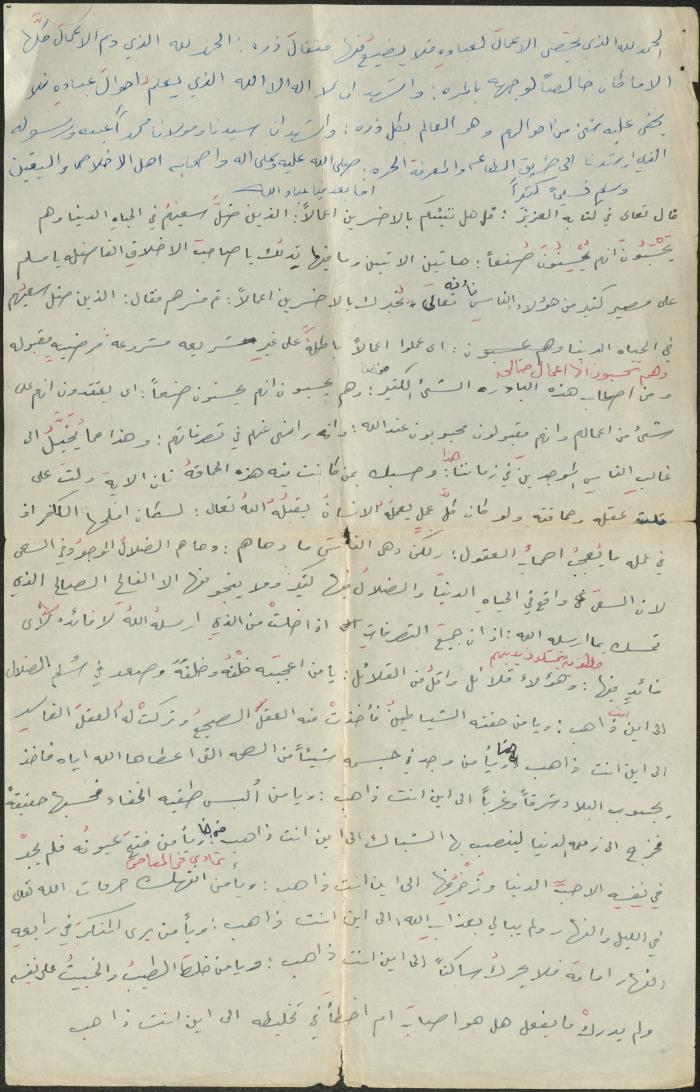 الحمد لله الذي يحصي الاعمال لعباده فلا يضيع منها مثقال ذره : الحمد لله الذي ذم الاعمال كلَّها
الا ما كان خالصاً لوجهه بالمره : واشهد ان لا اله الا الله الذي يعلم احوال عباده فلا
يخفى عليه شئ من احوالهم وهو العالم بكل ذره : واشهد ان سيدنا ومولانا محمداً عبده ورسوله
الذي ارشدنا الى طريق الطاعه والمعرفة الحره : صلى الله عليه وعلى اله واصحابه اهل الاخلاص واليقين
وسلم تسليماً كثيراً اما بعد فيا عباد الله
قال تعالى في كتابه العزيز : قل هل ننبئكم بالاخسرين اعمالاً : الذين ضلَّ سعيهُم في الحياه الدنيا وهم
يَحْسَبُونَ انهم يُحْسِنُونَ صُنعاً : هاتين الايتين وما فيها تدلك يا صاحبَ الاخلاق الفاضله يا مسلم
على مصير كثير من هؤلاء الناس فانه تعالى يخبرك بالاخسرين اعمالاً : ثم فسرهم فقال : الذين ضل سعيُهم
في الحياه الدنيا وهم يحسبون : اى عملوا اعمالاً باطلةً على غير شريعه مشروعه مرضيةٍ مقبوله
وهم يحسبون انها اعمال صالحه
ومن اصحاب هذه البادره الشئ الكثير : وهم يحسبون انهم يحسنون صنعاً : اى يعتقدون انهم على
شئ من اعمالهم وانهم مقبولون محبوبون عند الله : وانه راضى عنهم في تصرفاتهم : وهذا ما يُخَيَّلُ الى
غالب الناس الموجدين في زماننا هذا : وحسبك بمن كانت فيه هذه الحماقة فان الاية دلت على
قلت عقله وحماقته ولو كان كلَّ عملٍ يعملُهُ الانسانُ يقبلُهُ اللهُ تعالى : لكان افلحها الكافر اذ
في عمله ما يُعْجِبُ اصحابُ العقول : ولكن دهى الناسَ ما دهاهم : وجاءهم الضلال الموجود في السعي
لان السعىَ واقع في الحياه الدنيا والضلالُ فيها كثيرٌ ولا ينجو منها الا الفالح الصالح الذي
تمسك بما ارسله الله : اذ ان جميع التصرفات اذا خلتْ من الذي ارسلهُ اللهُ لا فائده لأى
فائدٍ فيها : وهؤلاء قلائل واقل من القلائل : يا من اعجبته خِلْقُه وخلقهُ وصعد في سُلم الضلال
الى اين انت ذاهب : ويا من حفته الشياطينُ فأخذتْ منه العقل الصحيحَ وتركتْ لهُ العقلَ الفاسد
الى اين انت ذاهب ويا من وجد في جسمه شيئاً من الصحه التى اعطاها الله اياه فأخذ
يجوب البلاد شرقاً وغرباً الى اين انت ذاهب : ويا من اُلبس طقيه الخفاء فحسبها حقيقةً
فخرج الى زهرة الدنيا لينصب بها الشباك الى اين انت ذاهب ويا من فتح عيونُه فلم يجدْ
في نفسه الا حبَّ الدنيا وزُخْرُفِها الى اين انت ذاهب : ويا من انتهك حرمات الله تعالى
تمادى في المعاصى
في الليل والنهار ولم يبالي بعذاب الله الى اين انت ذاهب : ويا من يرى المنكرَ في رابعه
النهار امامه فلا يحركُ ساكناً الى اين انت ذاهب : ويا من خلطَ الطيبُ والخبيثُ على نفسه
ولم يدركْ ما يفعل هل هو اصابةَ ام اخطأَ في تخليطه الى اين انت ذاهب